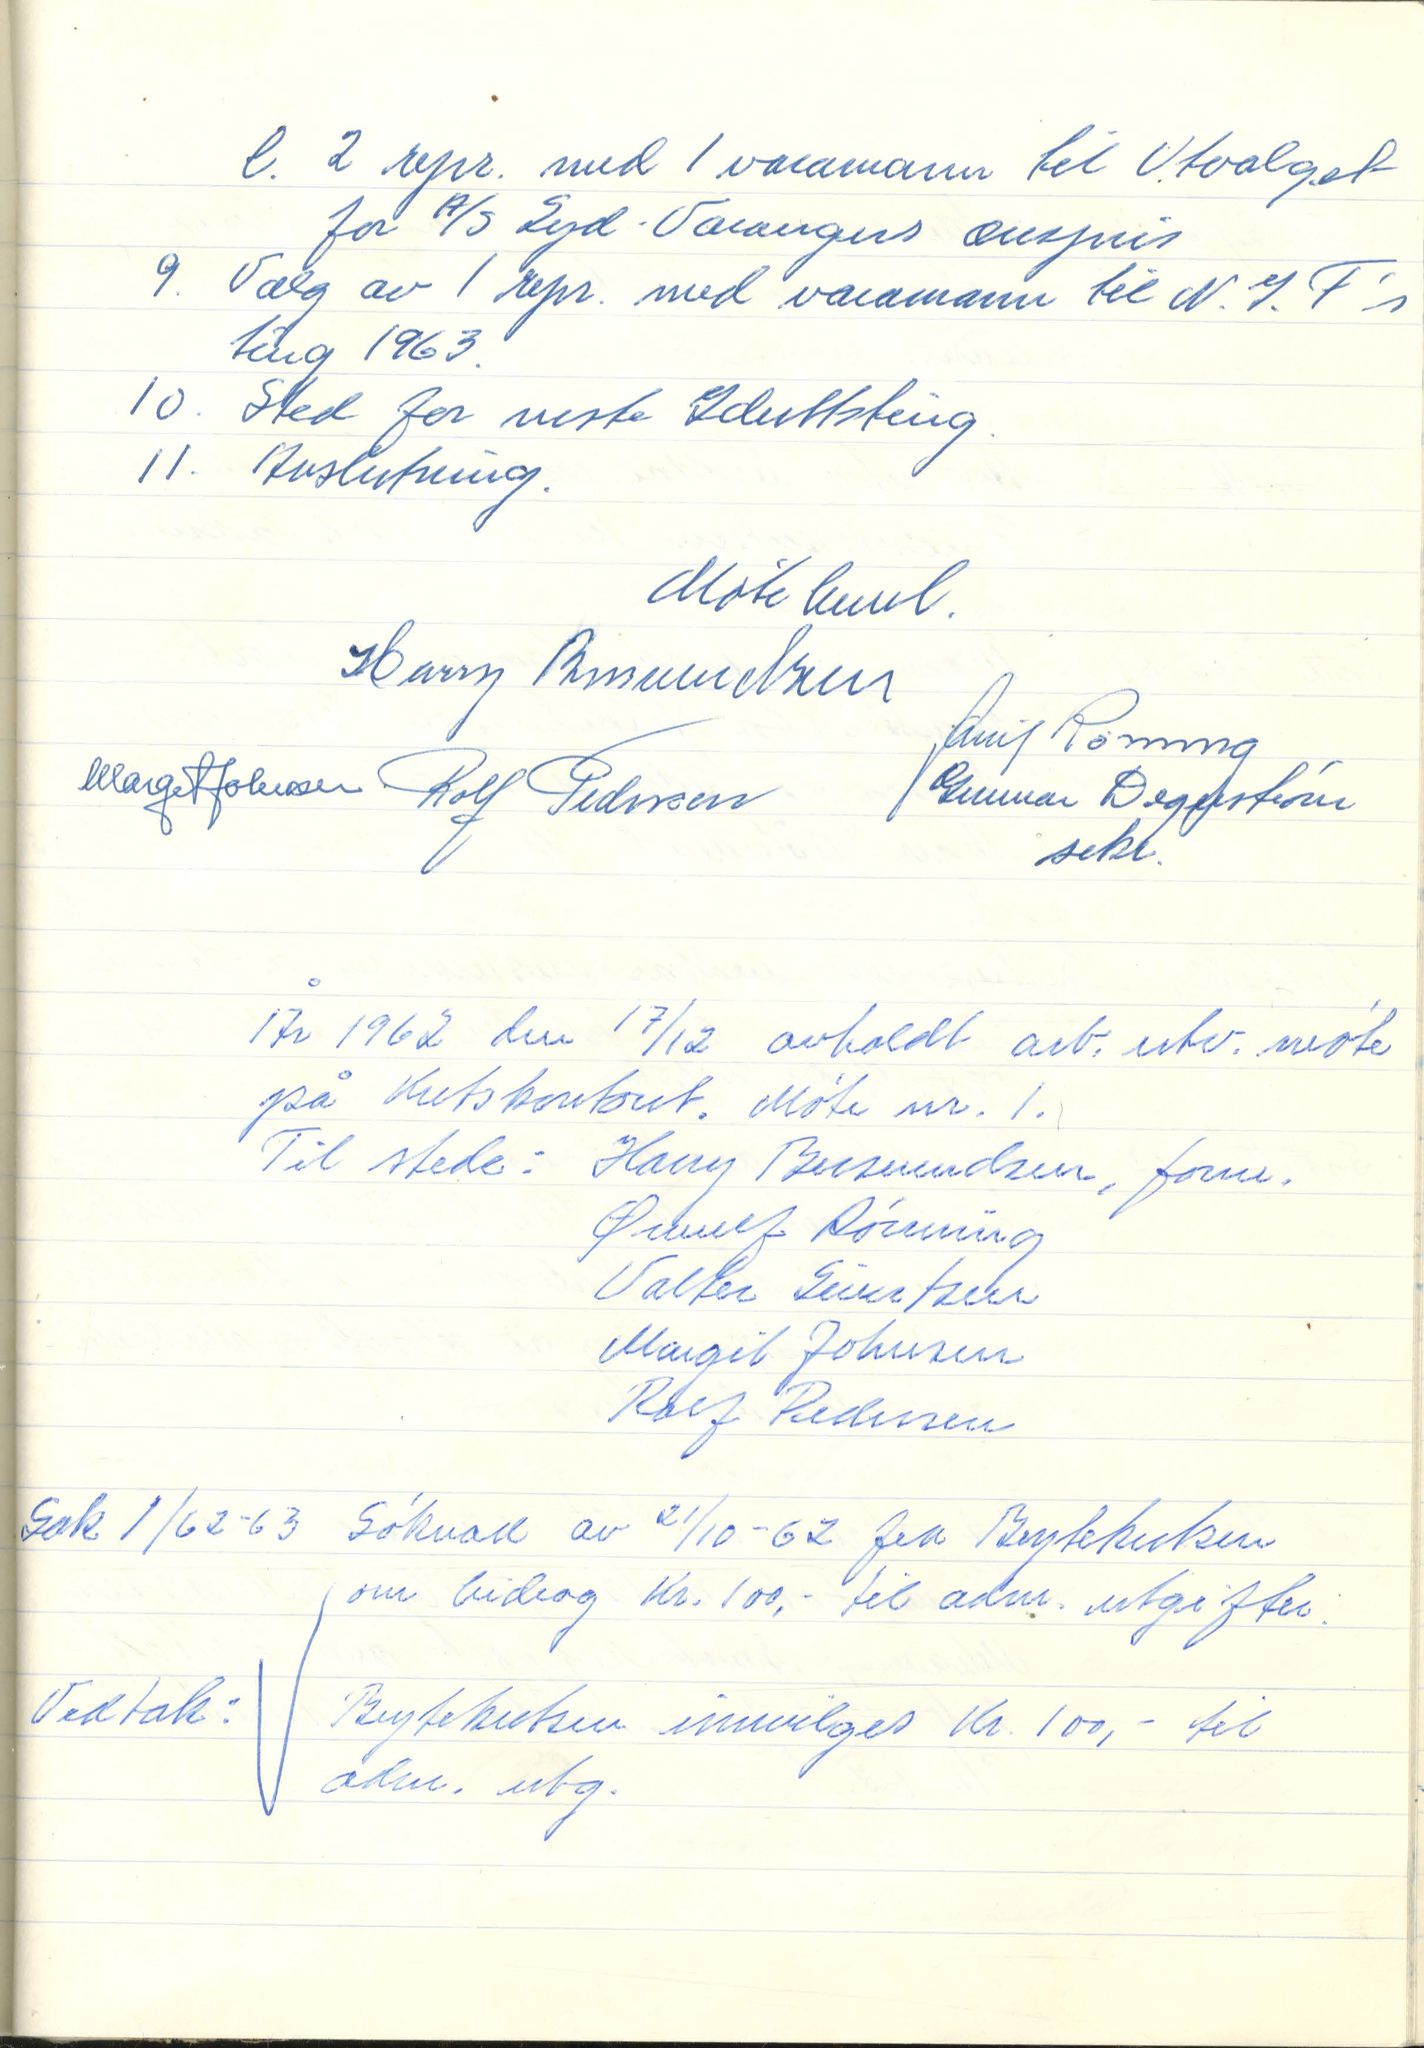 l. 2 repr. med 1 varamann til Utvalget
for A/S Syd-Varangers ærespris
9. Valg av 1 repr. med varamann til N.I.F's
ting 1963.
10. Sted for neste Idrettsting.
11. Avslutning.
Møte hevet.
Harry
Margit Johnsen Rolf Pedersen
Rönning
Gunnar Degerström
sekr.
År 1962 den 17/12 avholdt arb. utv. møte
på Kretskontoret. Møte nr. 1.
Til stede: Harry form.
Ørnulf Rönning
Valter Sivertsen
Margit Johnsen
Rolf Pedersen
Sak 1/62-63 Søknad av 21/10-62 fra Brytekretsen
om bidrag kr. 100,- til adm. utgifter.
Vedtak: Brytekretsen innvilges kr. 100,- til
adm. utg.